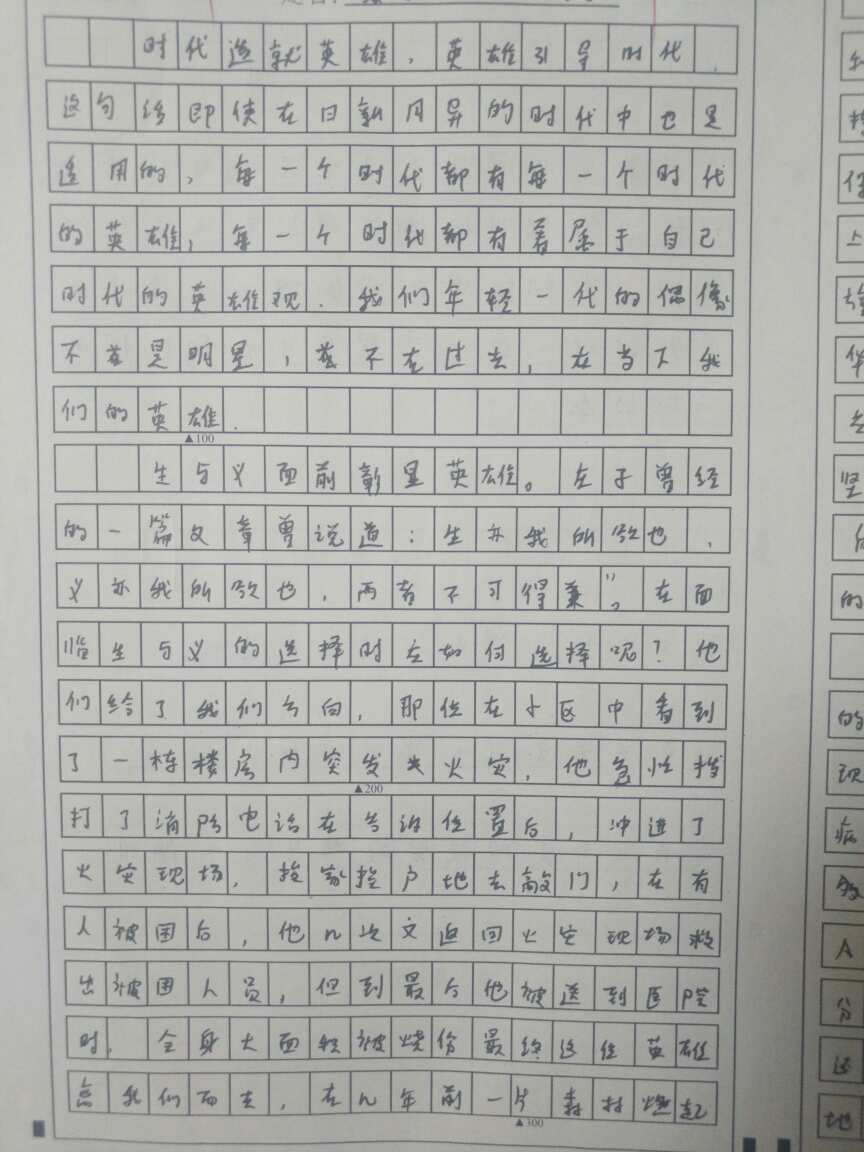 时代造就英雄，英雄引导时代．
这句话即使在日新月异的时代中也是
适用的，每一个时代都有每一个时代
的英雄，每一个时代都有着属于自己
时代的英雄观．我们年轻一代的偶像
不该是明星，该不在过去，在当下我
们的英雄．
▲100
生与义面前彰显英雄。在子曾经
的一篇文章曾说道：生亦我所欲也，
义亦我所欲也，两者不可得兼"。在面
临生与义的选择时在如何选择呢？他
们给了我们答向，那位在小区中看到
了一栋楼房内突发大火灾，他急忙拨
▲200
打了消防电话在告诉位置后，冲进了
火灾现场，挨家挨户地去敲门，在有
人被困后，他n次又返回火灾现场救
出被困人员，但到最后他被送到医院
时，全身大面积被烧伤最终这位英雄
离我们而去，在n年前一片森林燃起
▲300
的
病
A
分
还
地